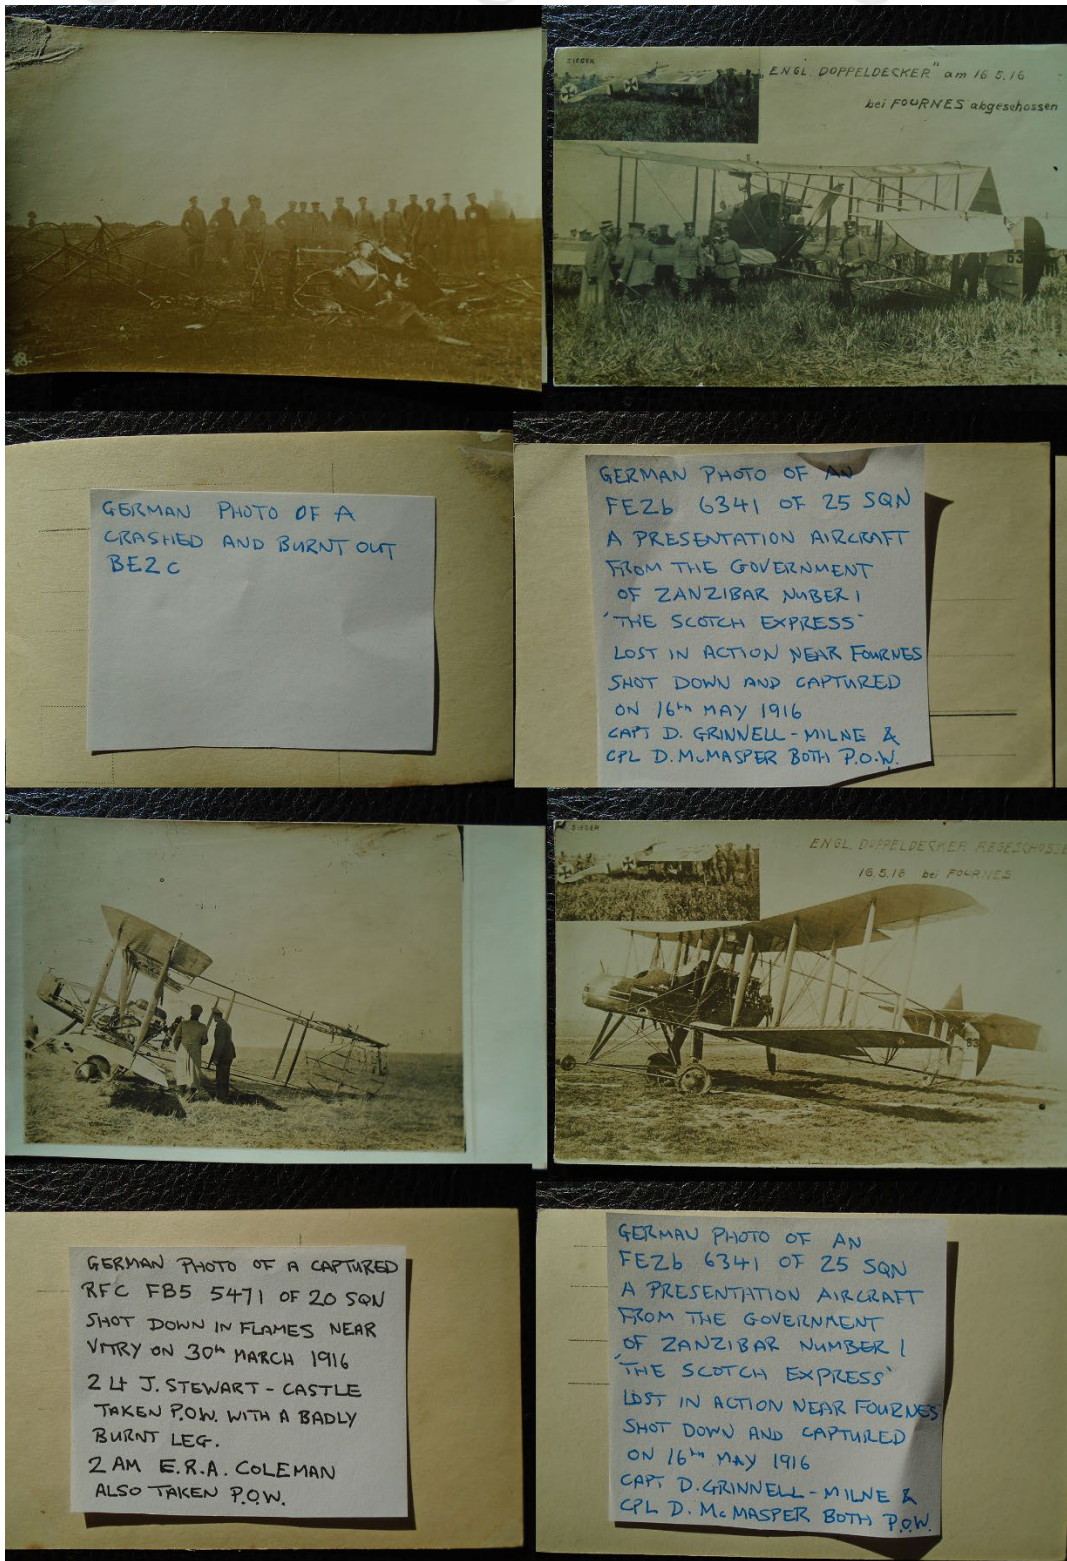 SIEGER
„ENGL. DOPPELDECKER" am 16 5.16
bei FOURNES abgeschossen
63
GERMAN PHOTO OF A
CRASHED AND BURNT OUT
BE2C
GERMAN PHOTO OF AN
FE2b 6341 OF 25 SQN
A PRESENTATION AIRCRAFT
FROM THE GOVERNMENT
OF ZANZIBAR NUBER 1
'THE SCOTCH EXPRESS'
LOST IN ACTION NEAR FOURNES
SHOT DOWN AND CAPTURED
ON 16th MAY 1916
CAPT D. GRINNELL-MILNE &
CPL D. McMASPER BOTH P.O.W.
SIEGER
ENGL. DOPPELDECKER ABGESCHOSSE
16.5.16 bei FOURNES
63
GERMAN PHOTO OF A CAPTURED
RFC FB5 5471 OF 20 SQN
SHOT DOWN IN FLAMES NEAR
VITRY ON 30th MARCH 1916
2 Lt J. STEWART-CASTLE
TAKEN P.O.W. WITH A BADLY
BURNT LEG.
2 AM E.R.A. COLEMAN
ALSO TAKEN P.O.W.
GERMAN PHOTO OF AN
FE2b 6341 OF 25 SQN
A PRESENTATION AIRCRAFT
FROM THE GOVERNMENT
OF ZANZIBAR NUMBER 1
'THE SCOTCH EXPRESS'
LOST IN ACTION NEAR FOURNES
SHOT DOWN AND CAPTURED
ON 16th MAY 1916
CAPT D. GRINNELL-MILNE &
CPL D. McMASPER BOTH P.O.W.